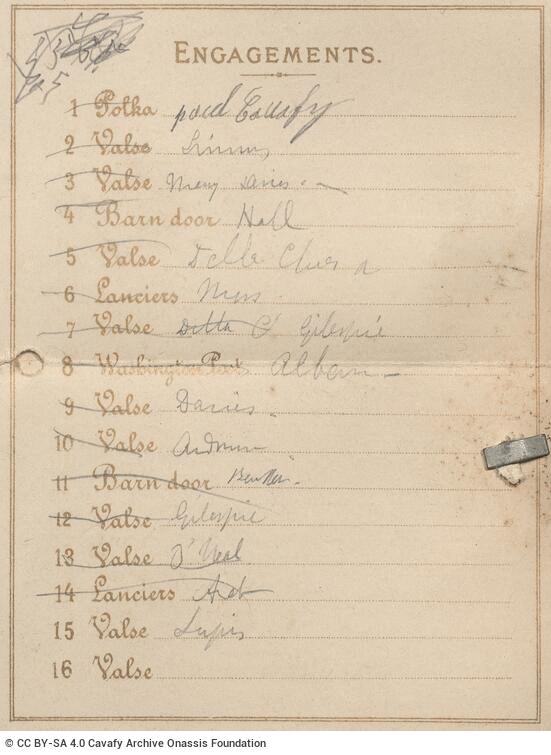 ENGAGEMENTS.
1 Polka paul Cavafy
2 Valse
3 Valse Davies
4 Barn door Hall
5 Valse Della Chiesa
6 Lanciers Moss
7 Valse Ditta Gilespie
8 Washington Post Alban
9 Valse Davies
10 Valse
11 Barn door
12 Valse Gilespie
13 Valse O'Neal
14 Lanciers
15 Valse
16 Valse
© CC BY-SA 4.0 Cavafy Archive Onassis Foundation